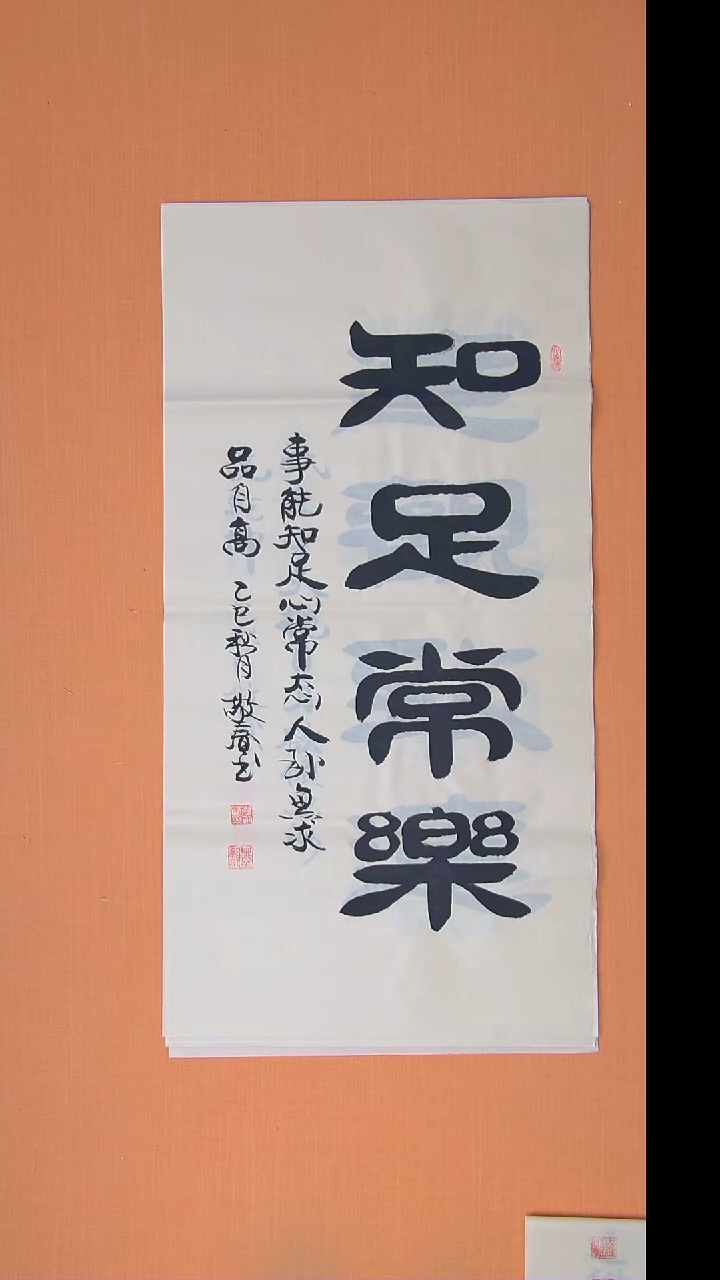 知足常樂
事能知足心常态人到無求
品自高 乙巳秋月 敬春书